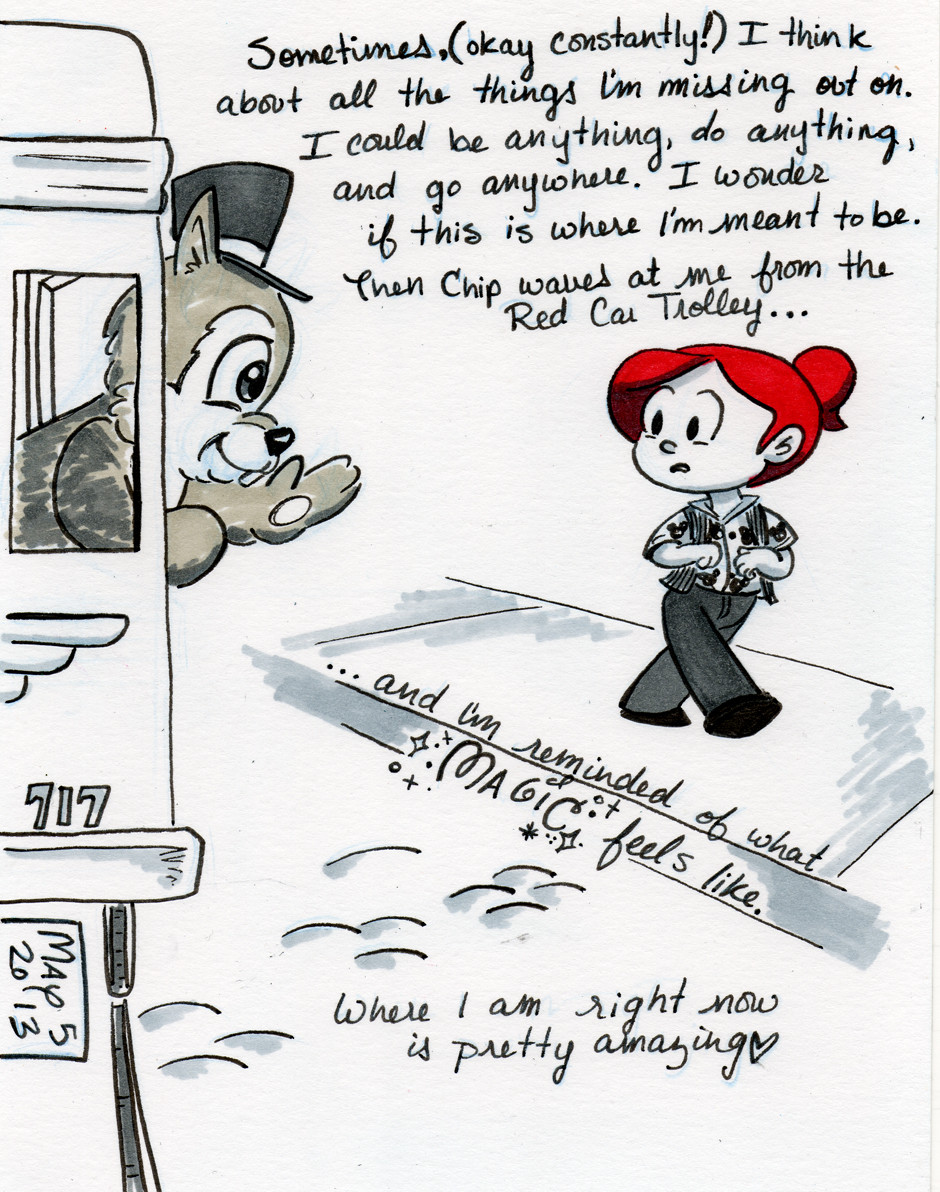 Sometimes, (okay constantly!) I think
about all the things I'm missing out on.
I could be anything, do anything,
and go anywhere. I wonder
if this is where I'm meant to be.
Then Chip waves at me from the
Red Car Trolley...
...and I'm reminded of what
MAGIC feels like.
717
MAY 5
2013
Where I am right now
is pretty amazing♡